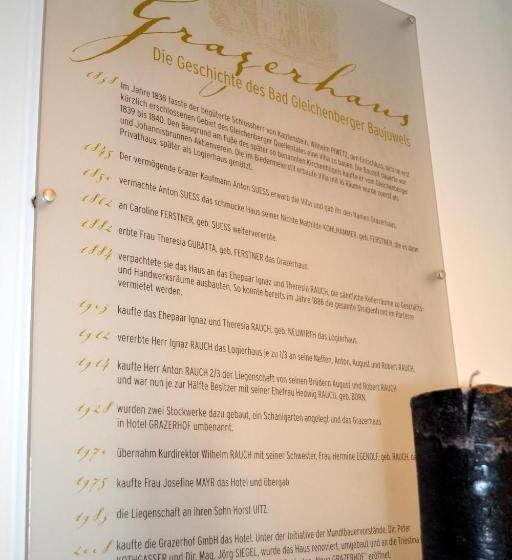 Grazerhaus
Die Geschichte des Bad Gleichenberger Baujuwels
1838 Im Jahre 1838 fasste der begüterte Schlossherr von Kapfenstein, Wilhelm PIWETZ, den Entschluss, sich im erst
kürzlich erschlossenen Gebiet des Gleichenberger Quellentales eine Villa zu bauen. Die Bauzeit dauerte von
1839 bis 1840. Den Baugrund am Fuße des später so benannten Kirchenhügels kaufte er vom Gleichenberger
und Johannisbrunnen Aktienverein. Die im Biedermeierstil erbaute Villa mit 16 Räume wurde zuerst als
Privathaus, später als Logierhaus genützt.
1845 Der vermögende Grazer Kaufmann Anton SUESS erwarb die Villa und gab ihr den Namen Grazerhaus.
1850 vermachte Anton SUESS das schmucke Haus seiner Nichte Mathilde KOHLHAMMER, geb. FERSTNER, die es dann
1862 an Caroline FERSTNER, geb. SUESS weitervererbte.
1882 erbte Frau Theresia GUBATTA, geb. FERSTNER das Grazerhaus.
1884 verpachtete sie das Haus an das Ehepaar Ignaz und Theresia RAUCH, die sämtliche Kellerräume zu Geschäfts-
und Handwerksräume ausbauten. So konnte bereits im Jahre 1886 die gesamte Straßenfront im Parterre
vermietet werden.
1903 kaufte das Ehepaar Ignaz und Theresia RAUCH, geb. NEUWIRTH das Logierhaus.
1912 vererbte Herr Ignaz RAUCH das Logierhaus je zu 1/3 an seine Neffen, Anton, August und Robert RAUCH.
1914 kaufte Herr Anton RAUCH 2/3 der Liegenschaft von seinen Brüdern August und Robert RAUCH
und war nun je zur Hälfte Besitzer mit seiner Ehefrau Hedwig RAUCH, geb. BORN.
1928 wurden zwei Stockwerke dazu gebaut, ein Schanigarten angelegt und das Grazerhaus
in Hotel GRAZERHOF umbenannt.
1970 übernahm Kurdirektor Wilhelm RAUCH mit seiner Schwester, Frau Hermine EGENOLF, geb. RAUCH,
1975 kaufte Frau Josefine MAYR das Hotel und übergab
1983 die Liegenschaft an ihren Sohn Horst UITZ.
2008 kaufte die Grazerhof GmbH das Hotel. Unter der Initiative der Mandlbauervorstände, Dir. Peter
KOTHGASSER und Dir. Mag. Jörg SIEGEL, wurde das Haus renoviert, umgebaut und an die
"Neue GRAZERHOF" eröffnet.